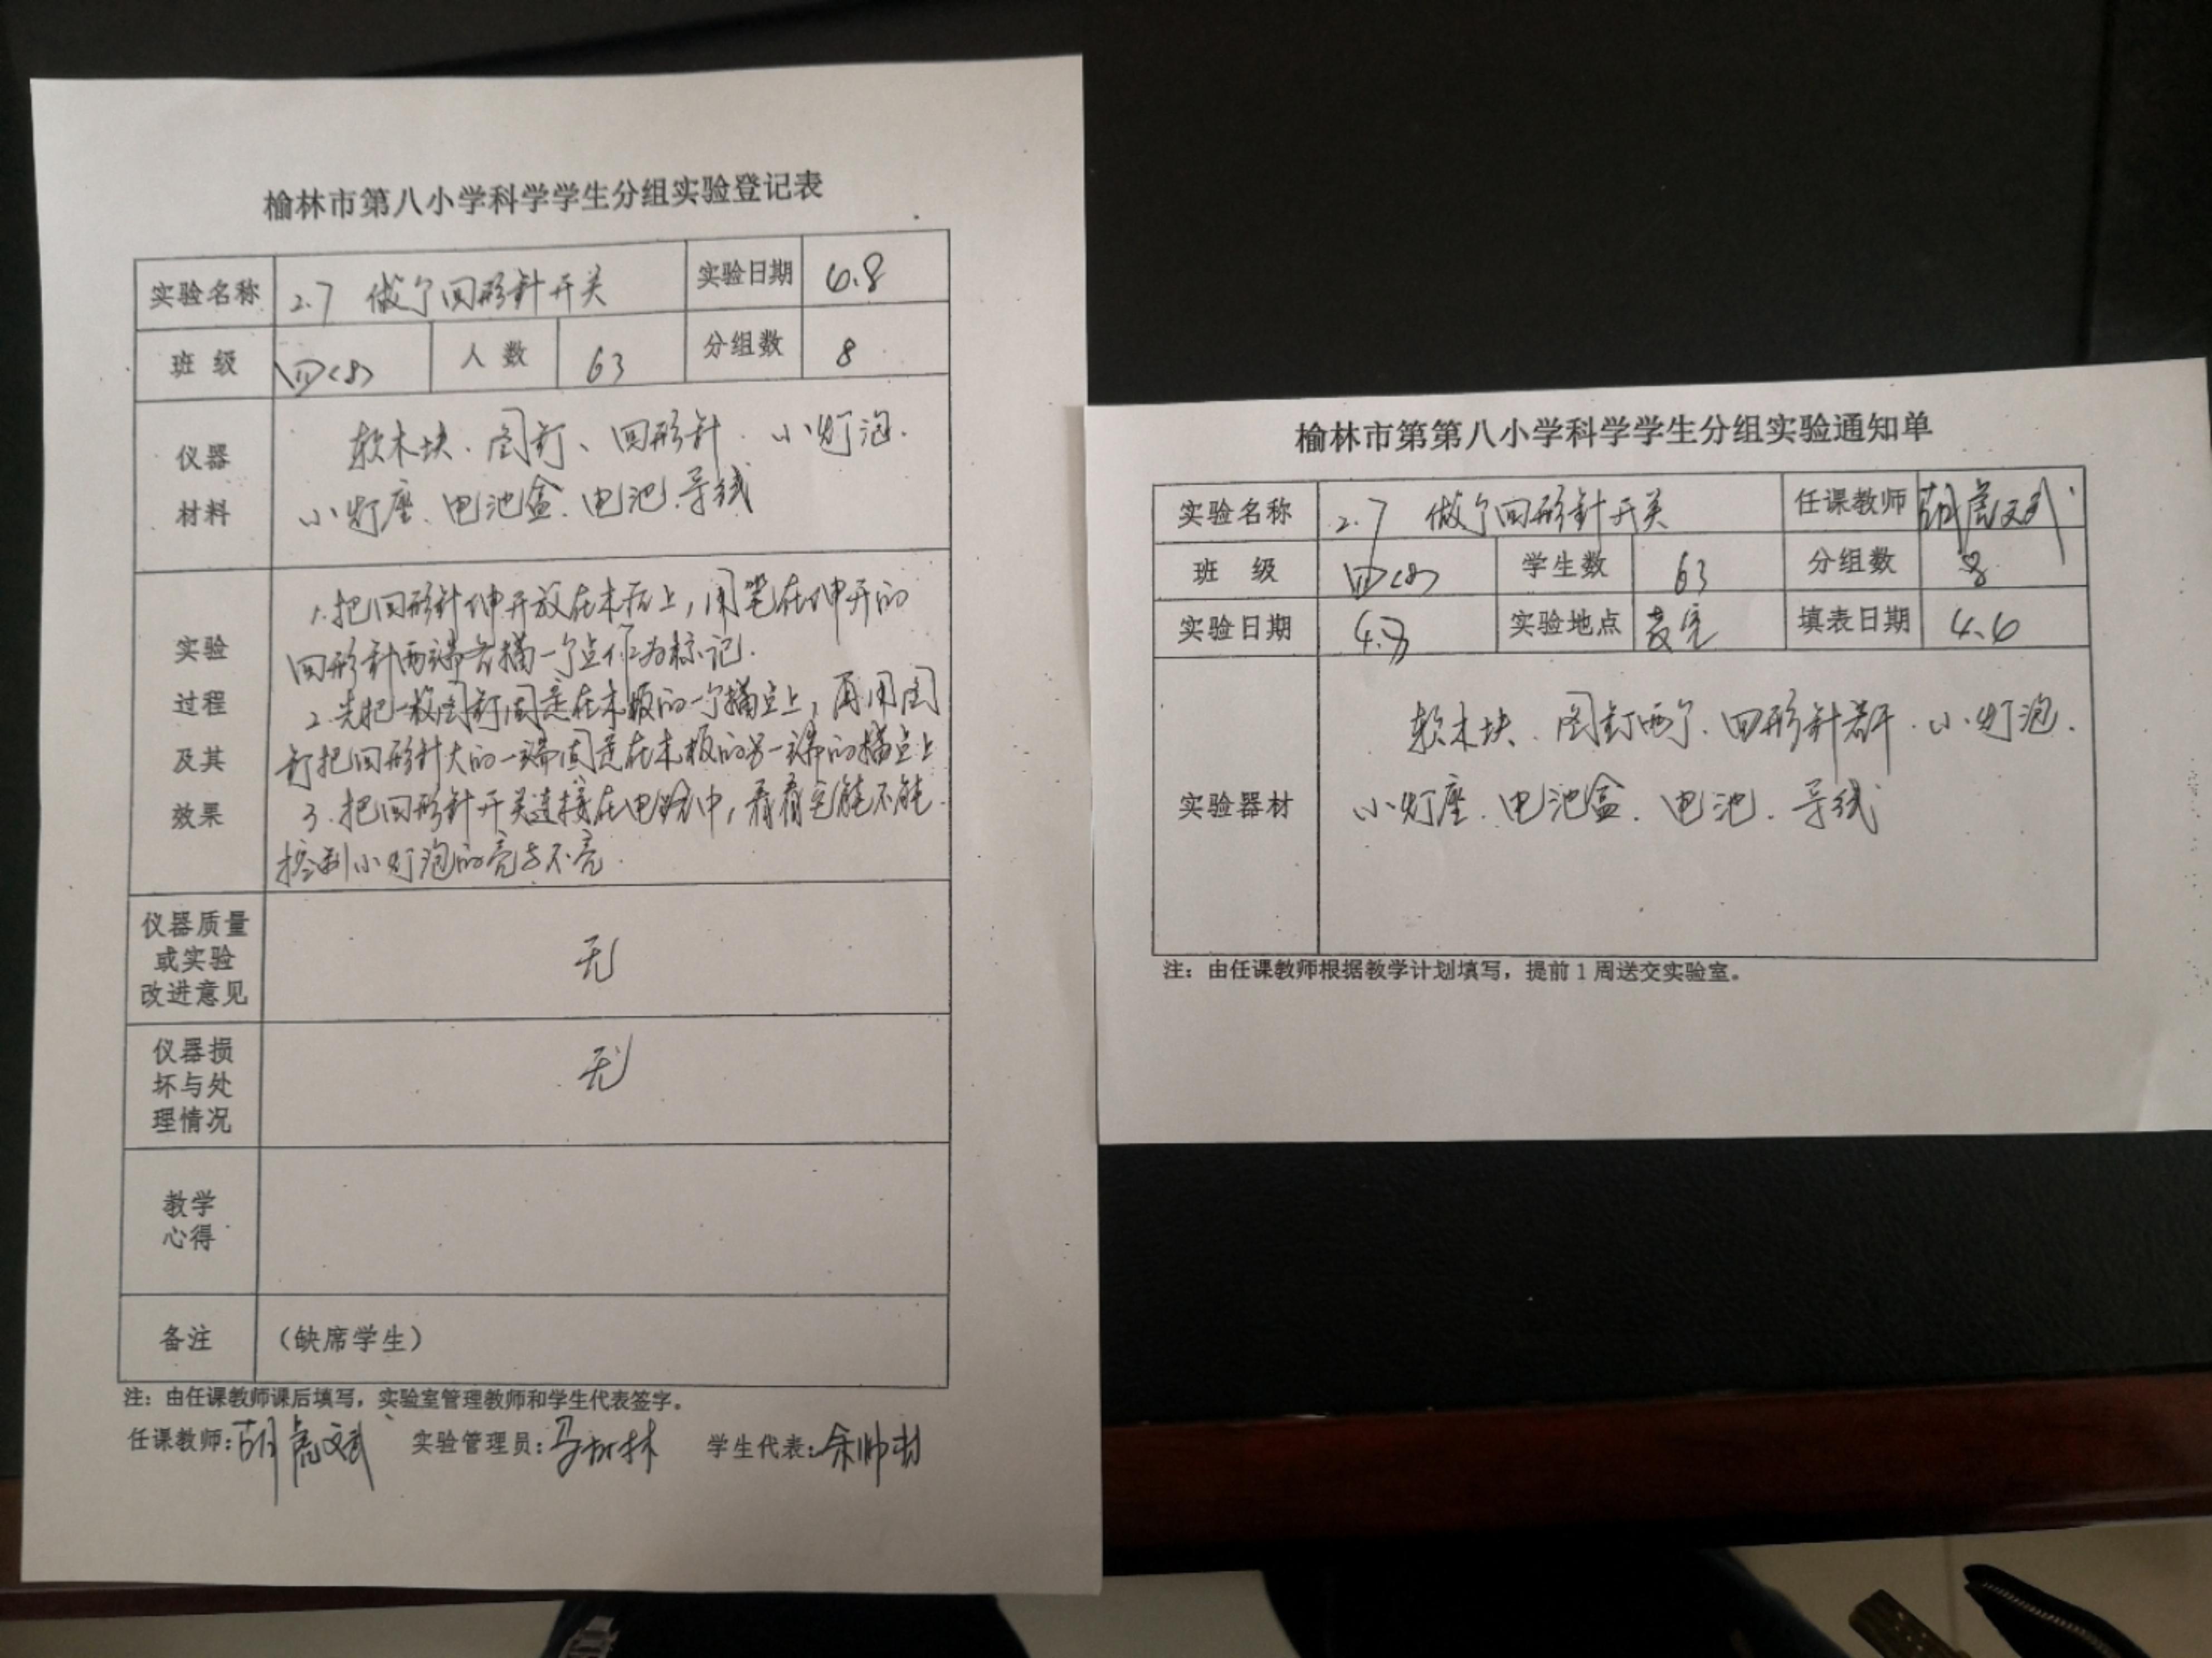 榆林市第八小学科学学生分组实验登记表
实验名称 2.7 做个回形针开关 实验日期 6.8
班级 四(8) 人数 63 分组数 8
仪器材料
软木块、图钉、回形针、小灯泡、
小灯座、电池盒、电池、导线
实验过程及其效果
1.把回形针伸开放在木板上，用笔在伸开的
回形针两端各描一个点作为标记.
2.先把一枚图钉固定在木板的一个描点上，再用图
钉把回形针大的一端固定在木板的另一端的描点上
3.把回形针开关连接在电路中，看看它能不能
控制小灯泡的亮与不亮.
仪器质量或实验改进意见 无
仪器损坏与处理情况 无
教学心得
备注 （缺席学生）
注：由任课教师课后填写，实验室管理教师和学生代表签字。
任课教师：胡虎文斌 实验管理员：马树林 学生代表：余帅
榆林市第第八小学科学学生分组实验通知单
实验名称 2.7 做个回形针开关 任课教师 胡虎文斌
班 级 四(8) 学生数 63 分组数 8
实验日期 实验地点 教室 填表日期 4.6
实验器材
软木块、图钉两个、回形针若干、小灯泡、
小灯座、电池盒、电池、导线
注：由任课教师根据教学计划填写，提前1周送交实验室。